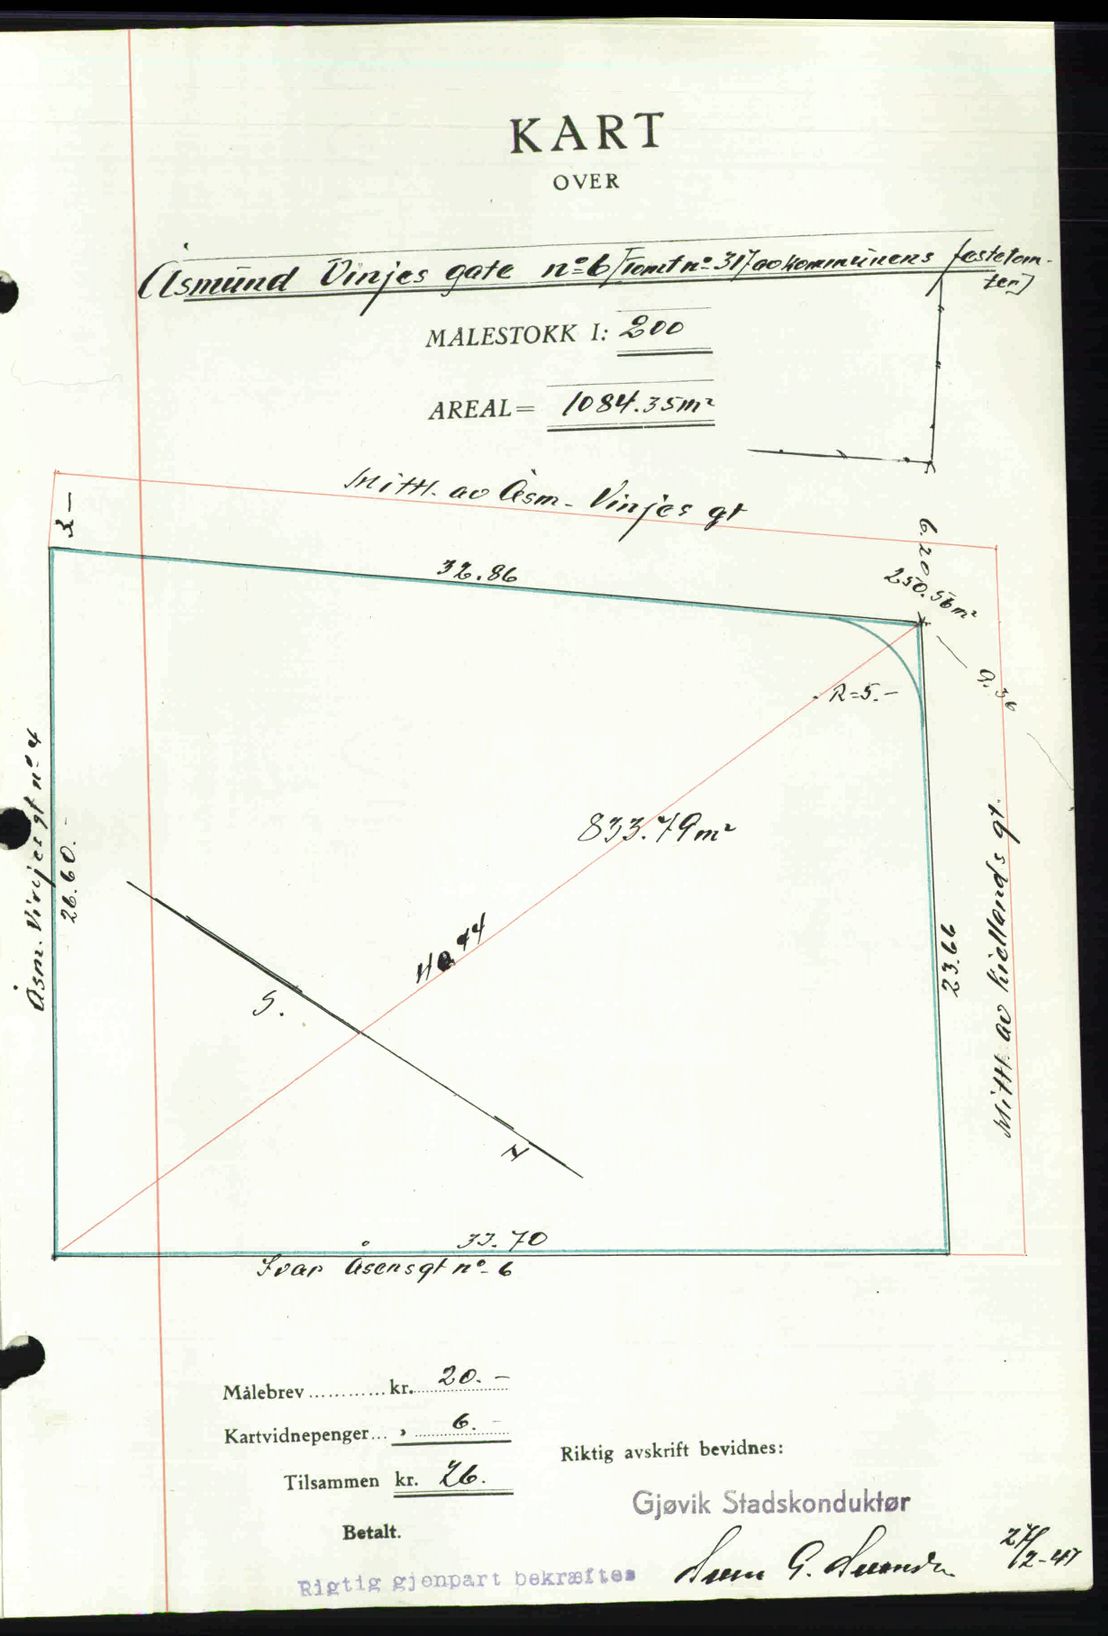 KART
OVER
Åsmund Vinjes gate no 6 [Tomt no 317 av kommunens festetom-
ter]
MÅLESTOKK 1: 200
AREAL = 1084.35 m²
Mittl. av Åsm. Vinjes gt
3 —
32.86
6.20
250.56 m²
9.36
R=5.-
Åsm. Vinjes gt no 4
26.60.-
833.79 m²
23.66
Mittl. av Kiellands gt.
S.
N
33.70
Ivar Åsensgt no 6
Målebrev ............ kr. 20. –
Kartvidnepenger... „ 6. –
Tilsammen kr. 26.
Betalt.
Riktig avskrift bevidnes:
Gjøvik Stadskonduktør
27/2-47
Rigtig gjenpart bekræftes